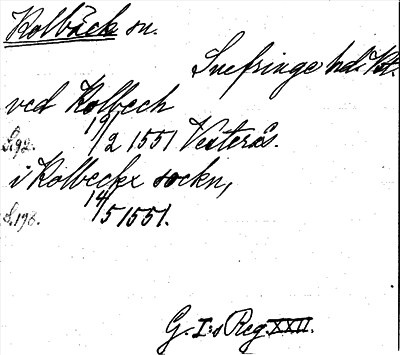 Kolbäck sn.
Snefringe hd. Vst.
ved Kolbech
S.92. 19/2 1551 Vesterås.
i Kolbeckx sockn,
S.198. 14/5 1551.
G. I:s Reg. XXII.